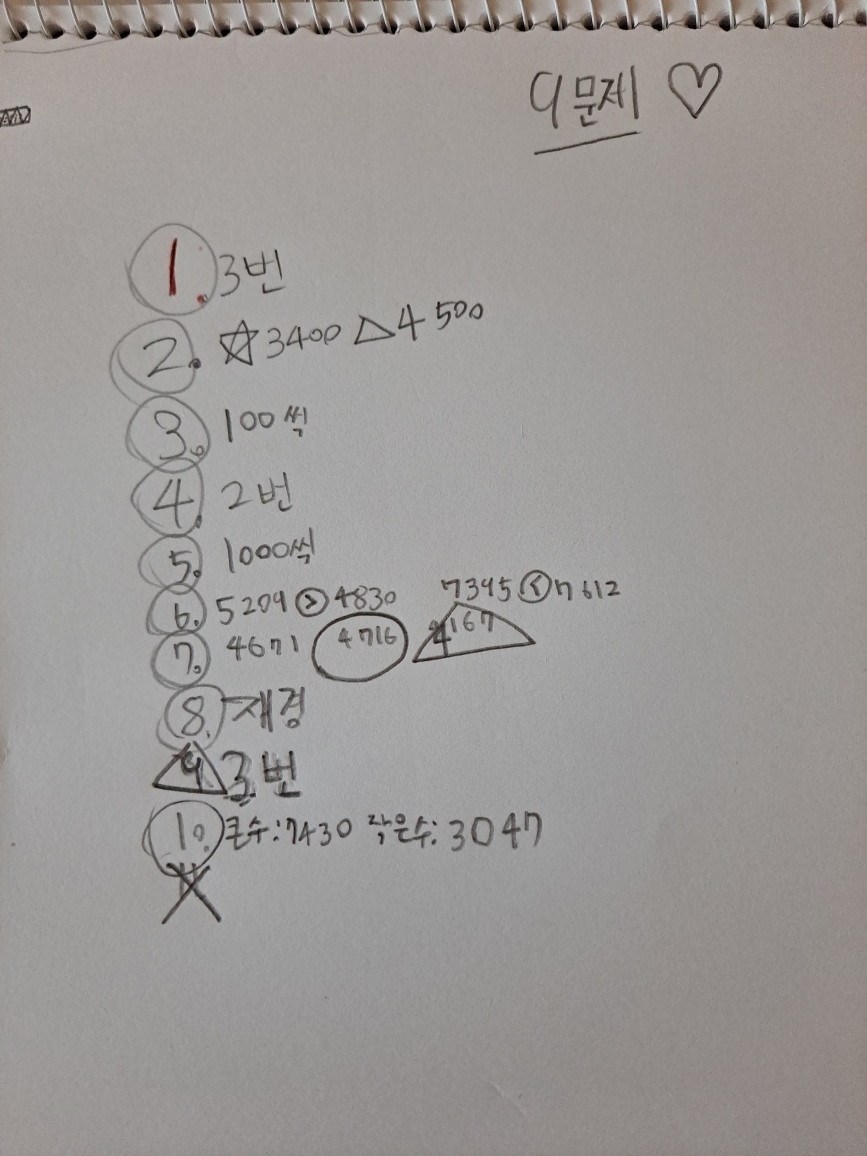 9문제 ♡
1. 3번
2. ☆3400 △4500
3. 100씩
4. 2번
5. 1000씩
6. 5209 > 4830 7395 < 7612
7. 4671 4716 4167
8. 재경
9 3번
10. 큰수:7430 작은수: 3047